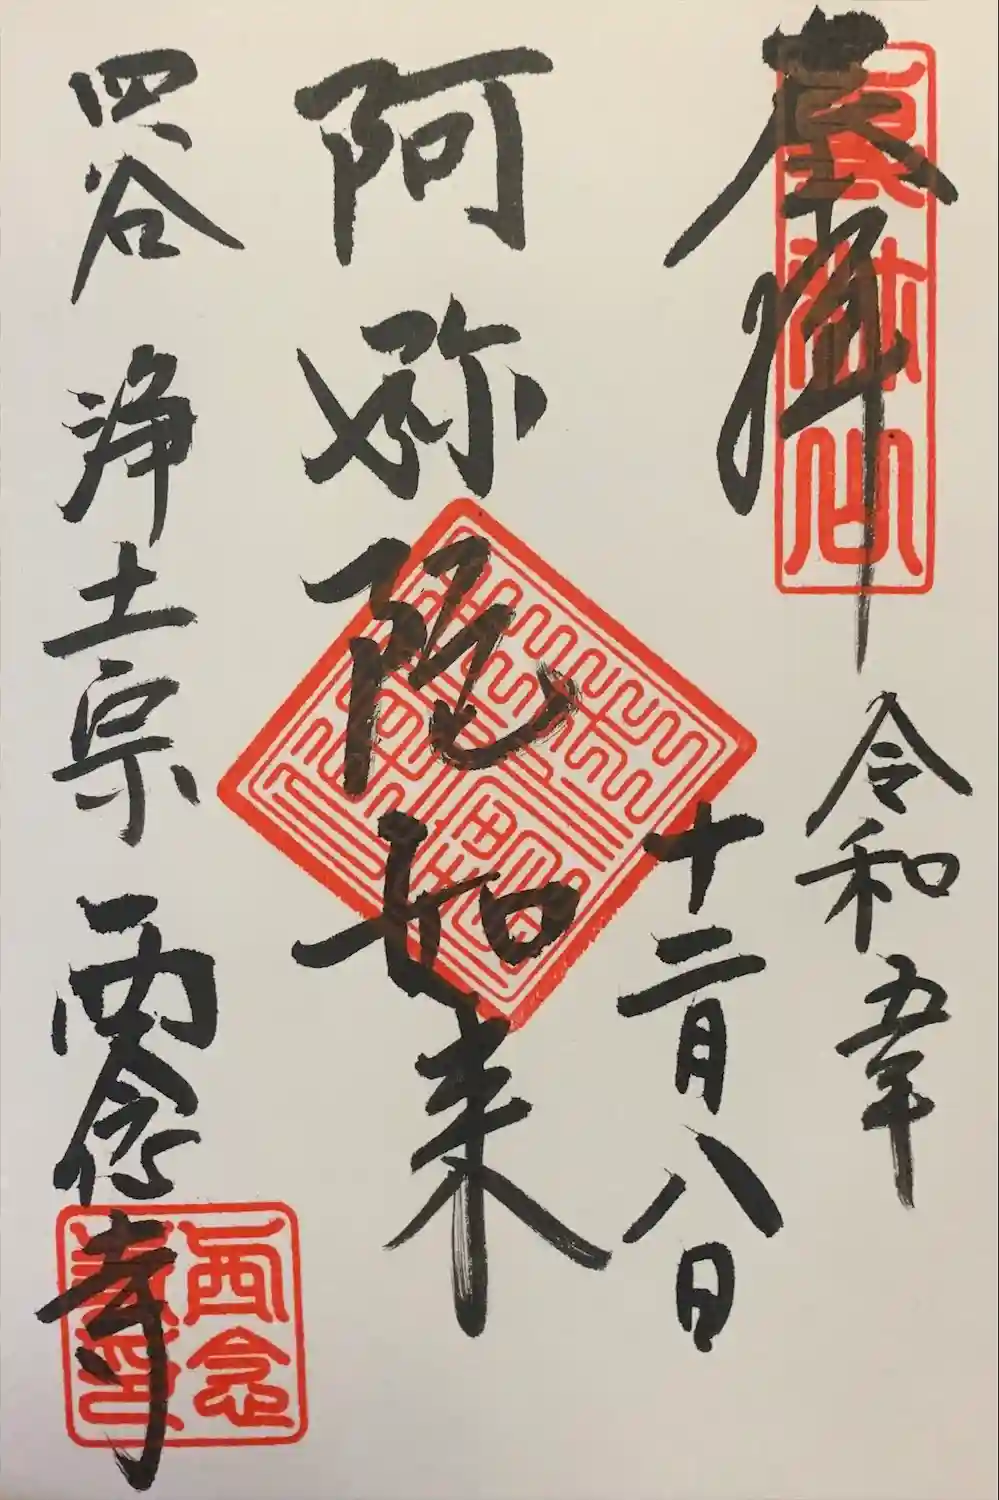 奉拝
令和五年
十二月八日
阿弥陀如来
四谷 浄土宗 西念寺
西念
寺印